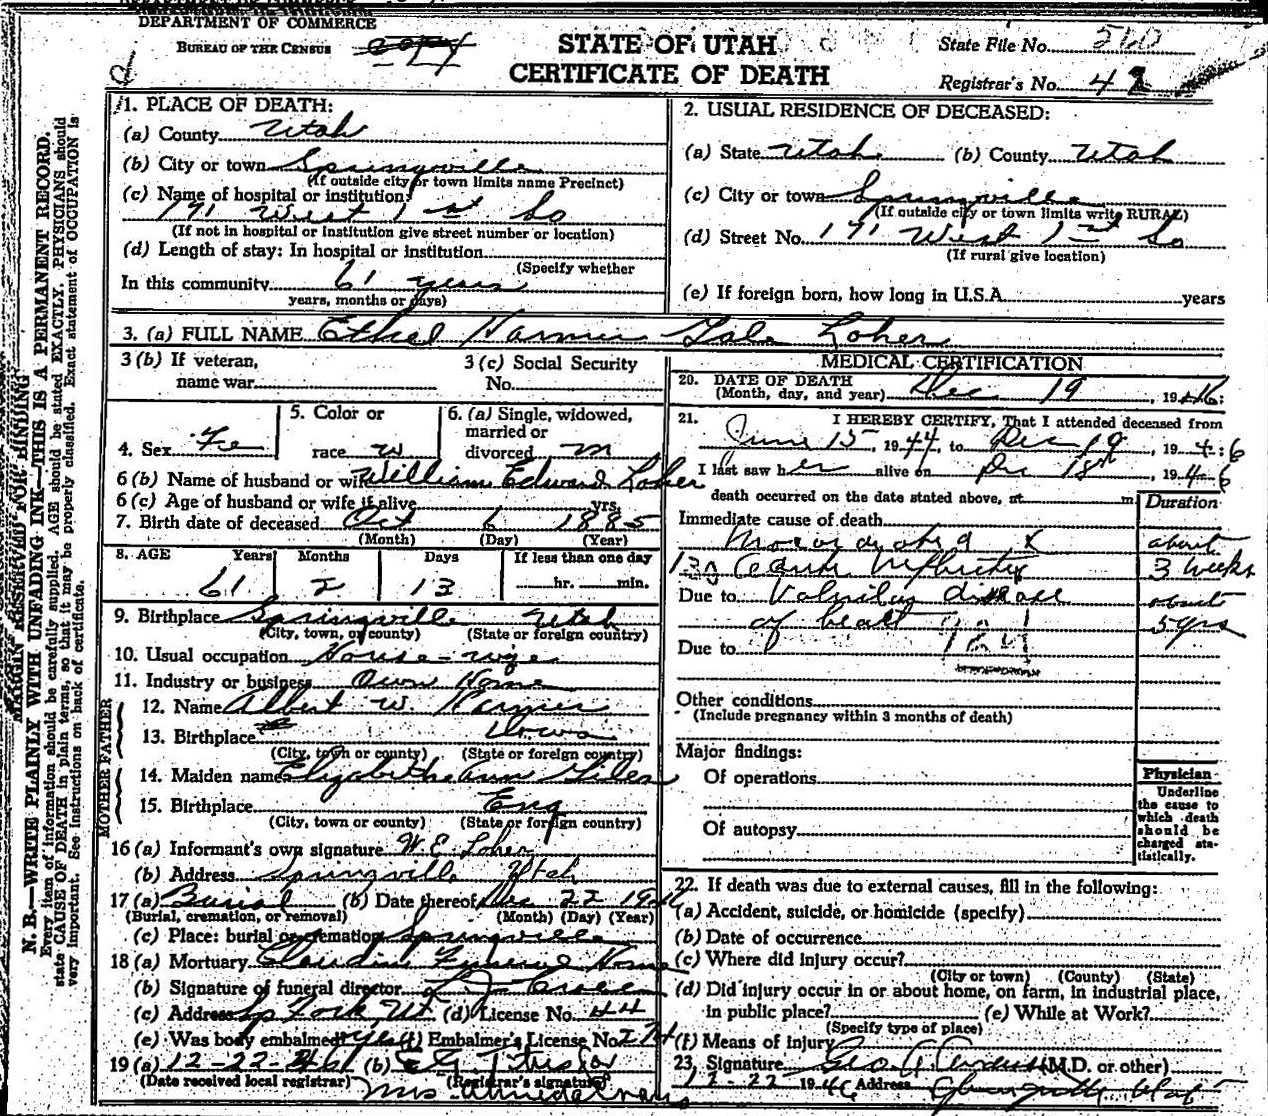 DEPARTMENT OF COMMERCE
BUREAU OF THE CENSUS
copy
STATE OF UTAH
CERTIFICATE OF DEATH
State File No. 560
Registrar's No. 42
MARGIN RESERVED FOR BINDING
N. B.—WRITE PLAINLY WITH UNFADING INK—THIS IS A PERMANENT RECORD.
Every item of information should be carefully supplied. AGE should be stated EXACTLY. PHYSICIANS should
state CAUSE OF DEATH in plain terms, so that it may be properly classified. Exact statement of OCCUPATION is
very important. See instructions on back of certificate.
1. PLACE OF DEATH:
(a) County Utah
(b) City or town Springville
(If outside city or town limits name Precinct)
(c) Name of hospital or institution:
171 West 1st So
(If not in hospital or institution give street number or location)
(d) Length of stay: In hospital or institution
(Specify whether
In this community 61 years
years, months or days)
2. USUAL RESIDENCE OF DECEASED:
(a) State Utah (b) County Utah
(c) City or town Springville
(If outside city or town limits write RURAL)
(d) Street No. 171 West 1st So
(If rural give location)
(e) If foreign born, how long in U.S.A. years
3. (a) FULL NAME Ethel Harmer Loher
3 (b) If veteran,
name war
3 (c) Social Security
No.
4. Sex Fe
5. Color or
race w
6. (a) Single, widowed,
married or
divorced m
6 (b) Name of husband or wife William Edward Loher
6 (c) Age of husband or wife if alive yrs.
7. Birth date of deceased Oct 6 1885
(Month) (Day) (Year)
8. AGE Years Months Days If less than one day
61 2 13 hr. min.
9. Birthplace Springville Utah
(City, town, or county) (State or foreign country)
10. Usual occupation House-wife
11. Industry or business Own Home
FATHER
12. Name Albert W. Harmer
13. Birthplace Iowa
(City, town or county) (State or foreign country)
MOTHER
14. Maiden name Elizabeth Ann Giles
15. Birthplace Eng
(City, town or county) (State or foreign country)
16 (a) Informant's own signature W. E. Loher
(b) Address Springville Utah
17 (a) Burial (b) Date thereof Dec 22 1946
(Burial, cremation, or removal) (Month) (Day) (Year)
(c) Place: burial or cremation Springville
18 (a) Mortuary Claudin Funeral Home
(b) Signature of funeral director
(c) Address Sp Fork, Ut (d) License No. 44
(e) Was body embalmed? yes (f) Embalmer's License No. 274
19 (a) 12-22-46 (b)
(Date received local registrar) (Registrar's signature)
Mrs
MEDICAL CERTIFICATION
20. DATE OF DEATH
(Month, day, and year) Dec 19, 1946
21. I HEREBY CERTIFY, That I attended deceased from
June 15, 1944, to Dec 19, 1946
I last saw her alive on Dec 18th 1946
death occurred on the date stated above, at m.
Duration
Immediate cause of death
Myocarditis x about
130 Acute Nephritis 3 weeks
Due to Valvular disease about
of heart 5 yrs
Due to
Other conditions
(Include pregnancy within 3 months of death)
Major findings:
Of operations
Of autopsy
Physician
Underline
the cause to
which death
should be
charged sta-
tistically.
22. If death was due to external causes, fill in the following:
(a) Accident, suicide, or homicide (specify)
(b) Date of occurrence
(c) Where did injury occur?
(City or town) (County) (State)
(d) Did injury occur in or about home, on farm, in industrial place,
in public place? (e) While at Work?
(Specify type of place)
(f) Means of injury
23. Signature Geo A Anderson (M.D. or other)
12-22 1946 Address Springville Utah